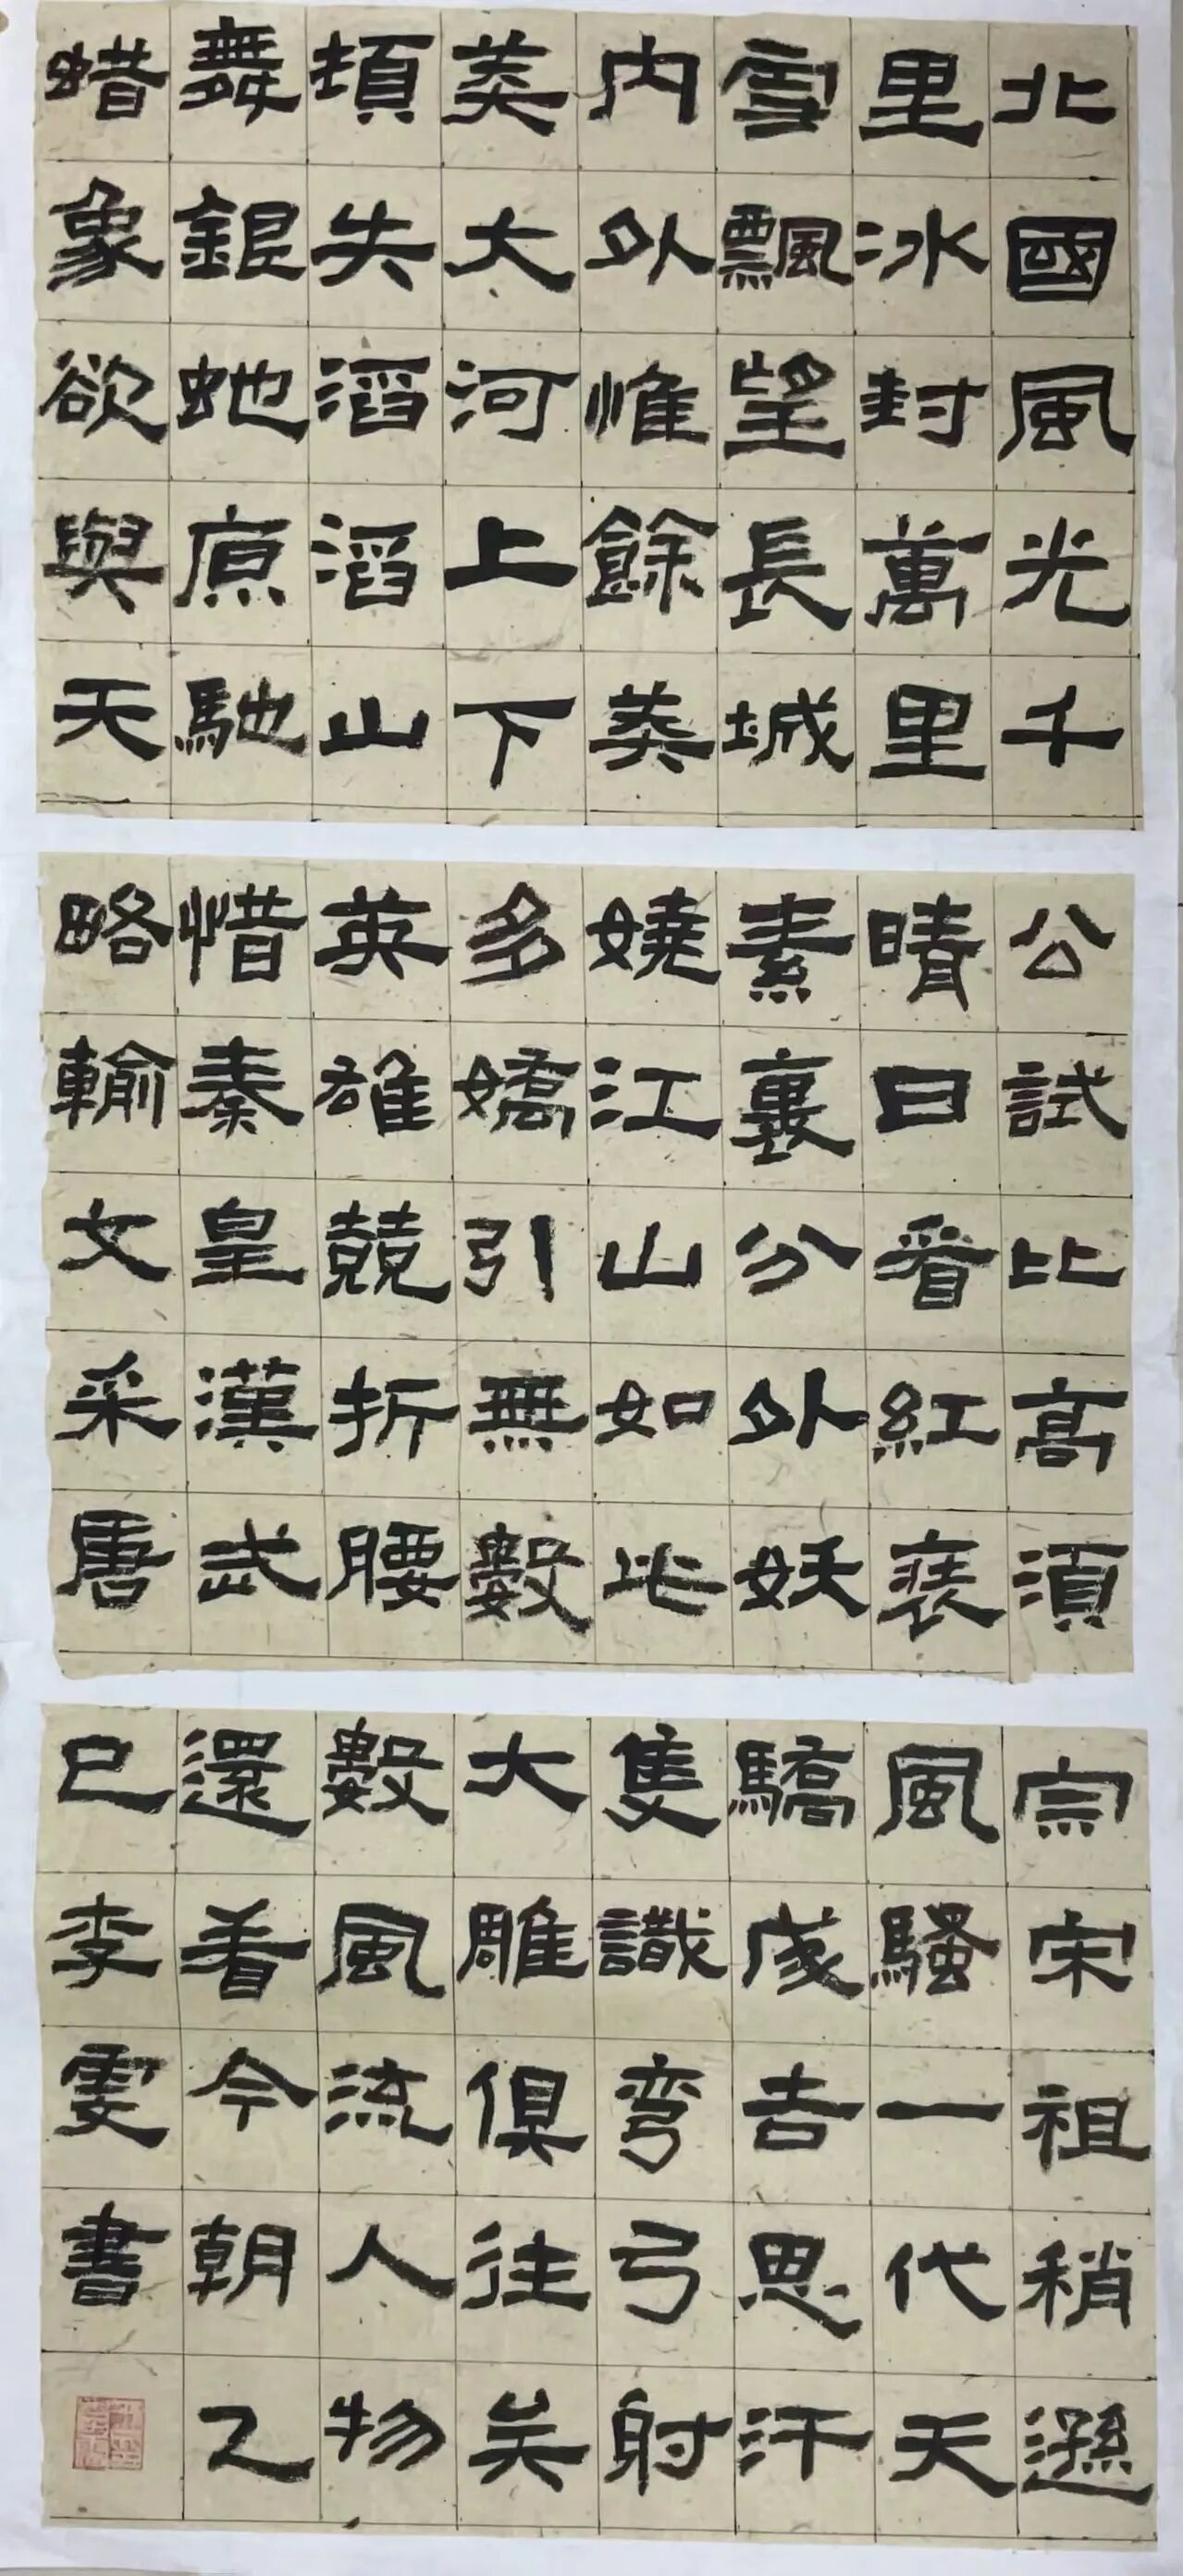 北國風光千
里冰封萬里
雪飄望長城
內外惟餘莽
莽大河上下
頓失滔滔山
舞銀蛇原馳
蜡象欲與天
公試比高須
晴日看紅裝
素裹分外妖
嬈江山如此
多嬌引無數
英雄競折腰
惜秦皇漢武
略輸文采唐
宗宋祖稍遜
風騷一代天
驕成吉思汗
隻識彎弓射
大雕俱往矣
數風流人物
還看今朝乙
巳李雯書